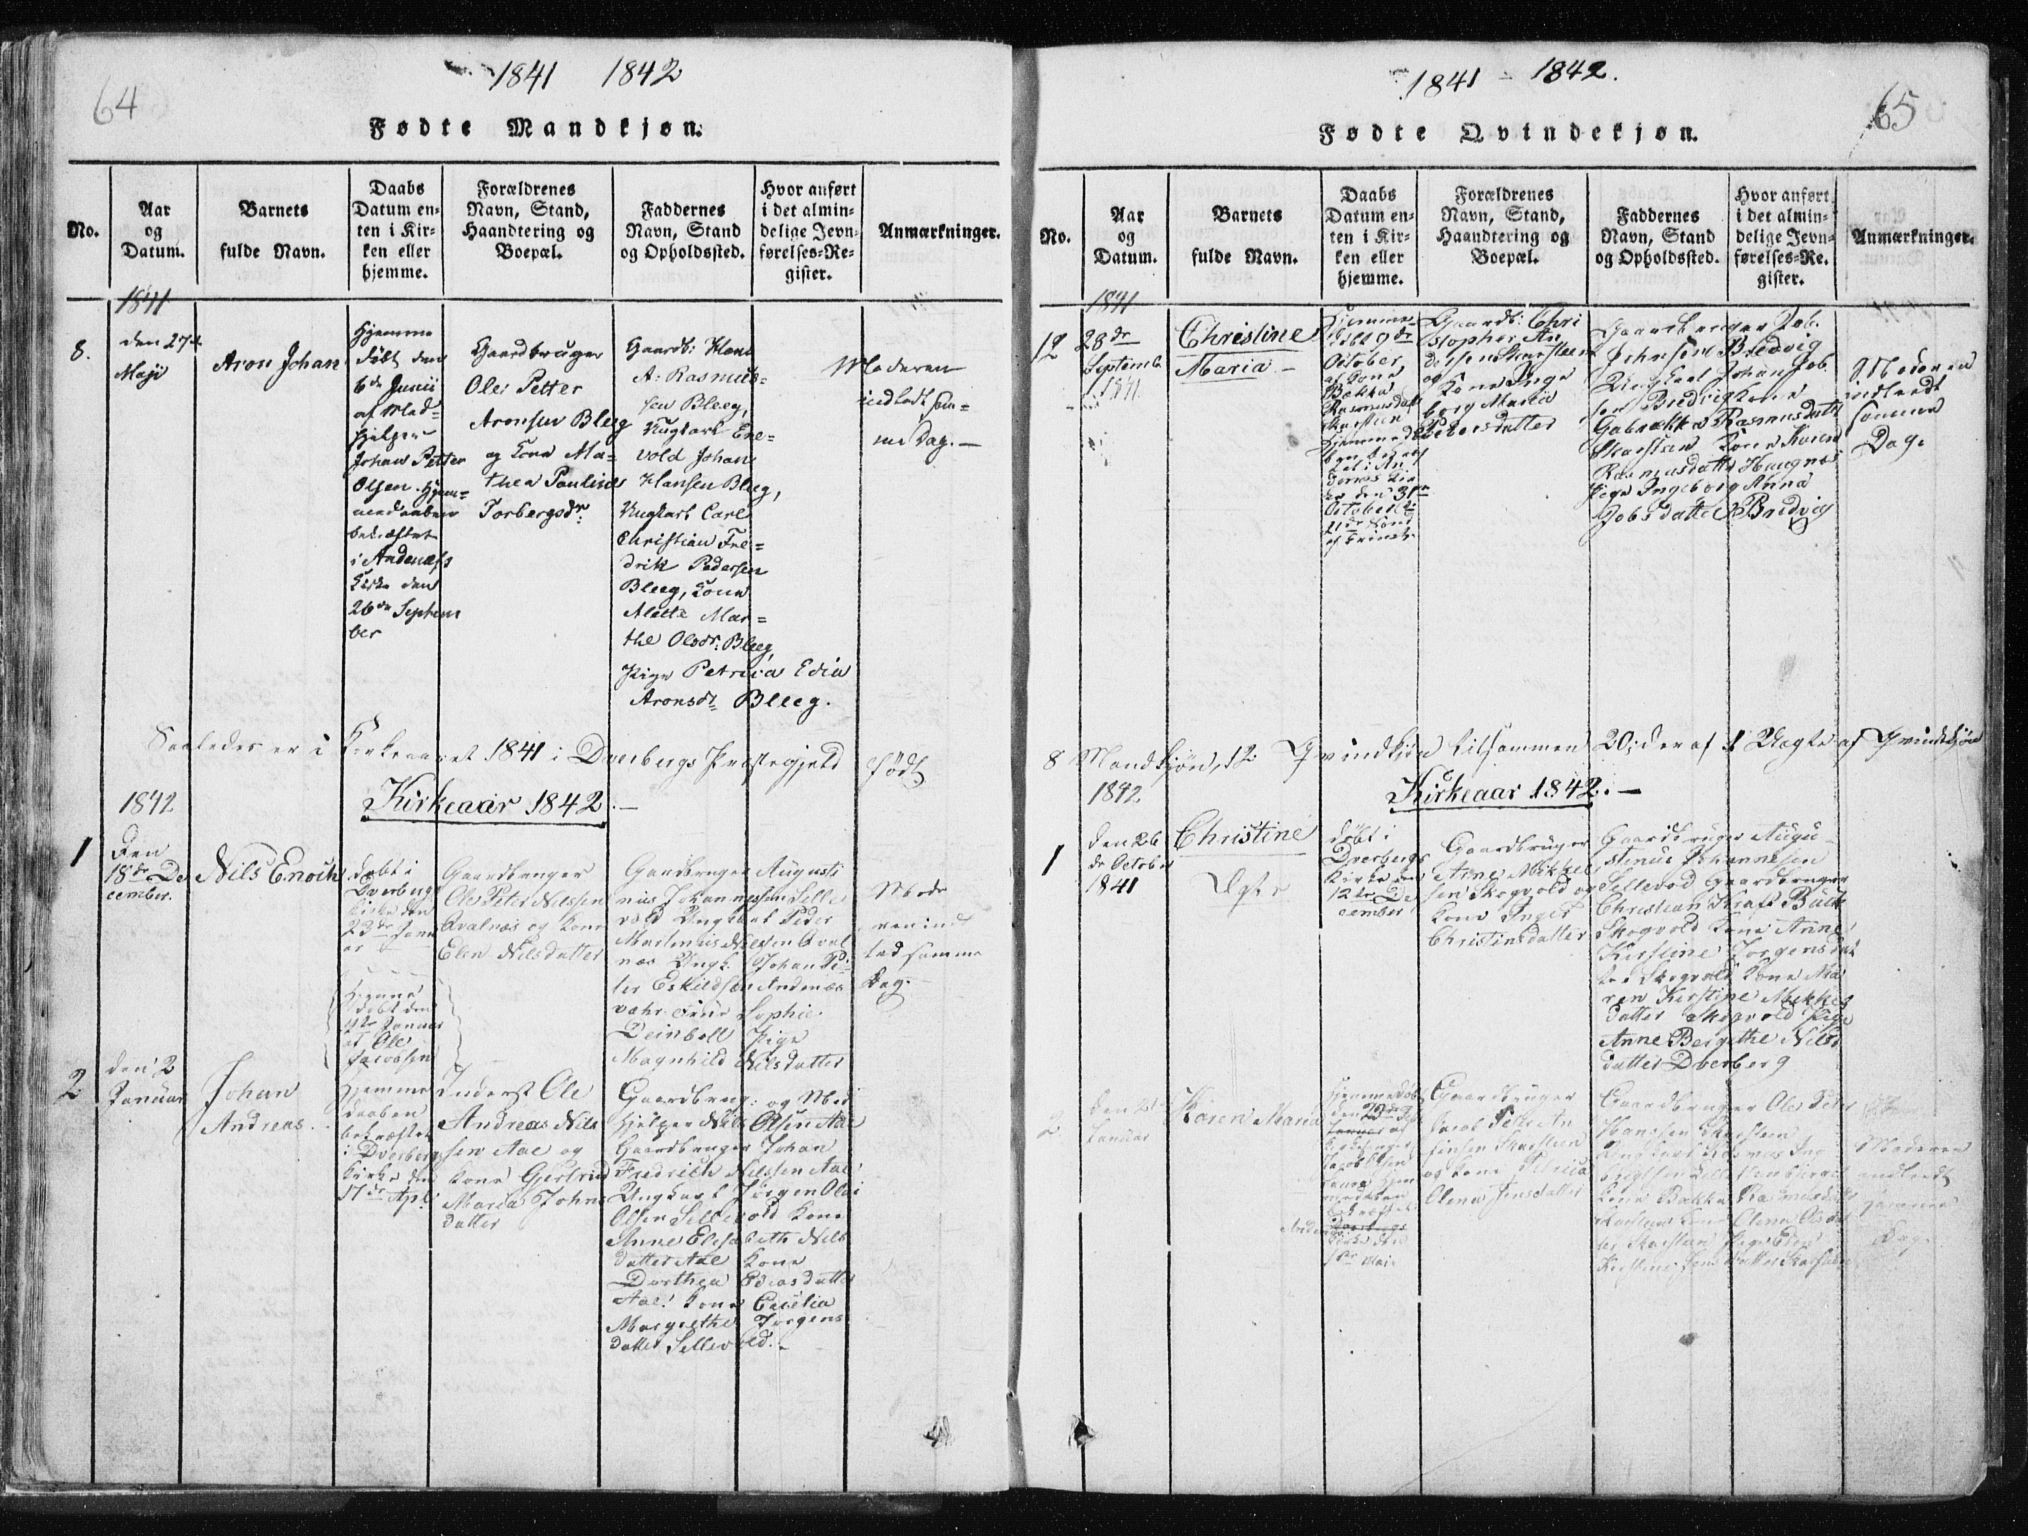 64
1841 1842
Fødte Mandkjøn.
No.
Aar
og
Datum.
Barnets
fulde Navn.
Daabs
Datum en-
ten i Kir-
ken eller
hjemme.
Forældrenes
Navn, Stand,
Haandtering og
Boepæl.
Faddernes
Navn, Stand
og Opholdssted.
Hvor anført
i det almin-
delige Jevn-
førelses-Re-
gister.
Anmærkninger.
1841
8.
den 27de
Maji
Aron Johan
Hjemme
døbt den
6de Junii
af Med-
hjelper
Johan Petter
Olsen. Hjem-
medaaben
bekræftet
i Andenæss
Kirke den
26de Septem
ber
Gaardbruger
Ole Petter
Aronsen Bleeg
og Kone Ma-
thea Pauline
Torbergsdr
Gaardb: Hans
A: Rasmus-
sen Bleeg,
Ungkarl Ene-
vold Johan
Hansen Bleeg,
Ungkarl Carl
Christian Fre-
drik Pedersen
Bleeg, Kone
Alette Mar-
the Olsdr: Bleeg,
Pige Petricia Edia
Aronsdr Bleeg.
Moderen
indledt sam-
me Dag.
Saaledes er i Kirkeaaret 1841 i Dverbergs Præstegjeld født
1842
Kirkeaar 1842.
1
Den
18de De
cember.
Nils Enoch
døbt i
Dverbergs
Kirke den
23de Janu
ar
Gaardbruger
Ole Peter Nilssen
Avalnæs og Kone
Elen Nilsdatter
Gaardbruger Augusti
nus Johannessen Selle
vold Ungkarl Peder
Martinus Nilsen Aval
næs Ungk. Johan Pe-
ter Eskildsen Andenæs
vahr Frue Sophie
Deinboll Pige
Magnhild Nilsdatter
Mode
ren ind
led samme
Dag.
2
den 2
Januar
Johan
Andreas.
Hjemme
døbt den
Januar
af Ole
Jacobsen
Hjemme
daaben
bekræftet
i Dverbergs
Kirke den
17de Apl:
Inderst Ole
Andreas Nils
sen Aae og
Kone Gjertrud
Maria Johns
datter
Gaardbrug: og Med
hjelper Nils Olsen Aae
Gaardbruger Johan
Fredrich Nilssen Aae
Ungkarl Jørgen Olai
Olsen Sellevold Kone
Anne Elisabeth Nils
datter Aae Kone
Dorthea Ediasdatter
Aae! Kone Cecilia
Margrethe Jørgens
datter Sellevold.
65
1841 - 1842.
Fødte Qvindekjøn.
No.
Aar
og
Datum.
Barnets
fulde Navn.
Daabs
Datum en-
ten i Kir-
ken eller
hjemme.
Forældrenes
Navn, Stand,
Haandtering og
Boepæl.
Faddernes
Navn, Stand
og Opholdssted.
Hvor anført
i det almin-
delige Jevn-
førelses-Re-
gister.
Anmærkninger.
1841
12
28de
Septemb
1841
Christine
Maria
Hjemme
døbt 9de
October
af Kone
Bækka
Rasmusdatt
Skarstien
Hjemmedaa
ben
den 31te
October
Gaardb: Chri
stopher An
dersen Skarsteen
og
Kone Inge
borg Maria
Pedersdatter
Gaardbruger Job.
Johnsen Bredvig
Ungkarl Johan Job
sen Bredvig Kone
Rasmusdatt
Skarsten Kone Karen
Rasmusdatter Haugnæs
Pige Ingeborg Anna
Jobsdatter Bredvig
Moderen
indledt
samme
Dag.
8 Mandkjøn, 12 Qvindkjøn tilsammen 20; deraf 1 Uægte af Qvindekjøn
1842
Kirkeaar 1842.
1
den 26
de October
1841
Christine
Ægte
døbt i
Dverbergs
Kirke den
12te De
cember
Gaardbruger
Arne Mikkel
sen Skogvold og
Kone Inger
Christinsdatter
Gaardbruger Augu-
stinus Johannesen
Sellevod Gaardbruger
Christian Kraft Bull
Skogvold Kone Anne
Kirstine Jørgensdat
ter Skogvold Kone Ma
ren Kirstine Mikkels
datter Skogvold Pige
Anne Bergithe Nils
datter Dverberg
2
den 21
Januar
Karen Maria
Hjemmedøb
Kirke den
1ste Mai.
Gaardbruger
Jacob Peter An
Skarstien
og Kone Petricia
Olena Jensdatter
Gaardbruger Ole Peder
Hanssen Skarstien
Kone Bækka Rasmusdatt
Skarstien Kone Olena Olsdat
ter Skarstien Pige Edia
Kirstine Jensdatter Skarstien
Moderen
indledt
samme
Dag